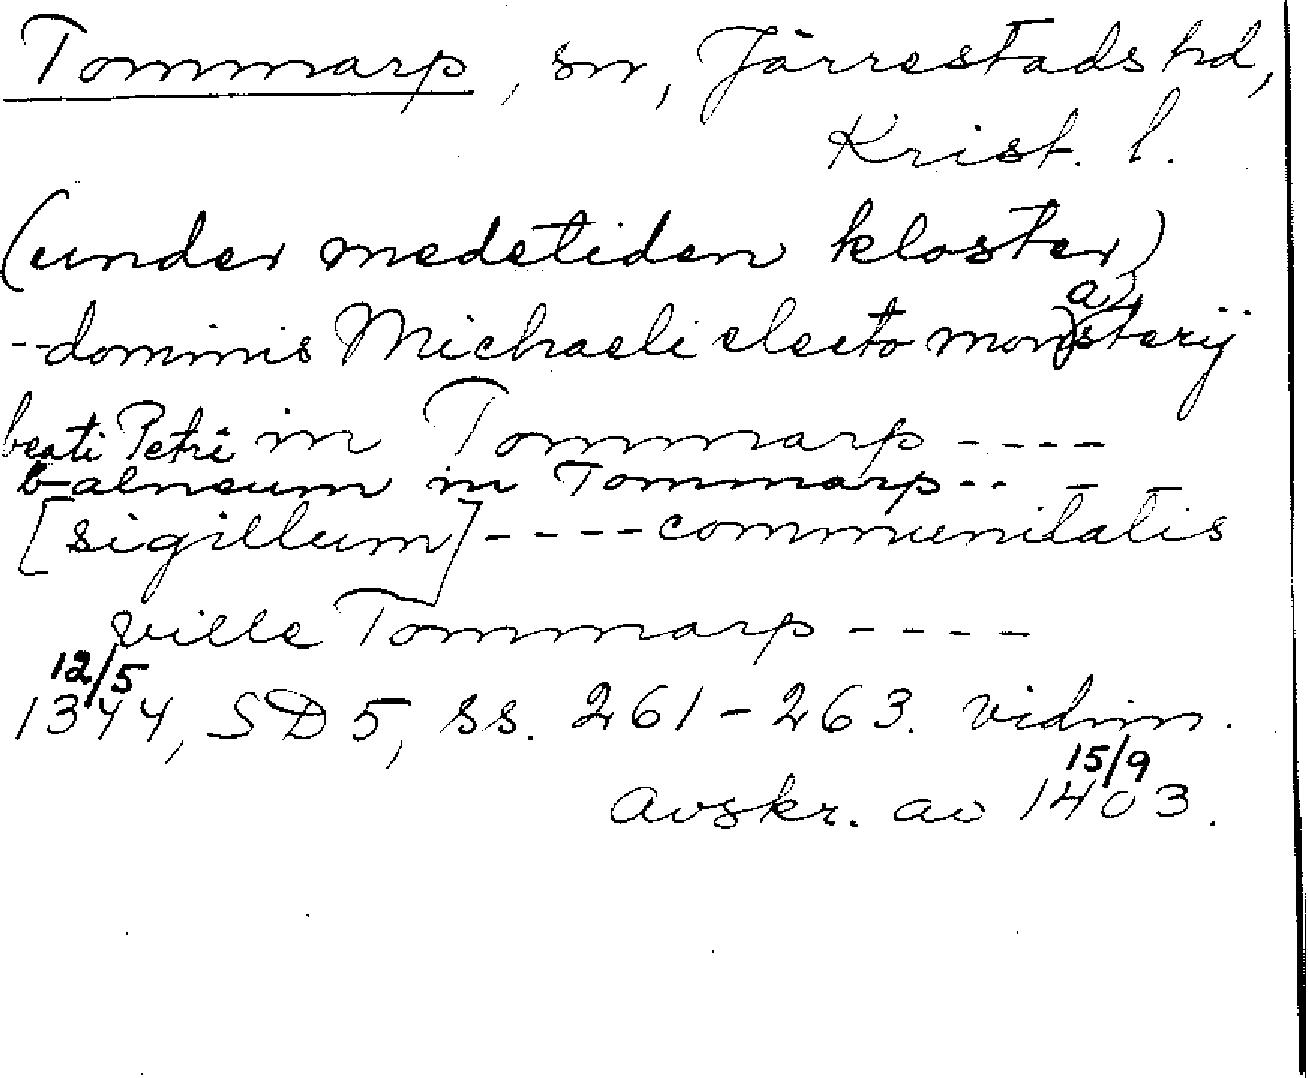 Tommarp, sn, Järrestads hd,
Krist. l.
(under medetiden kloster)
-- dominis Michaeli electo monasterij
beati Petri in Tommarp ----
balneum in Tommarp -- -
[sigillum] ---- communitatis
ville Tommarp ----
12/5
1344, SD 5, ss. 261-263. vidim.
15/9
Avskr. av 1403.